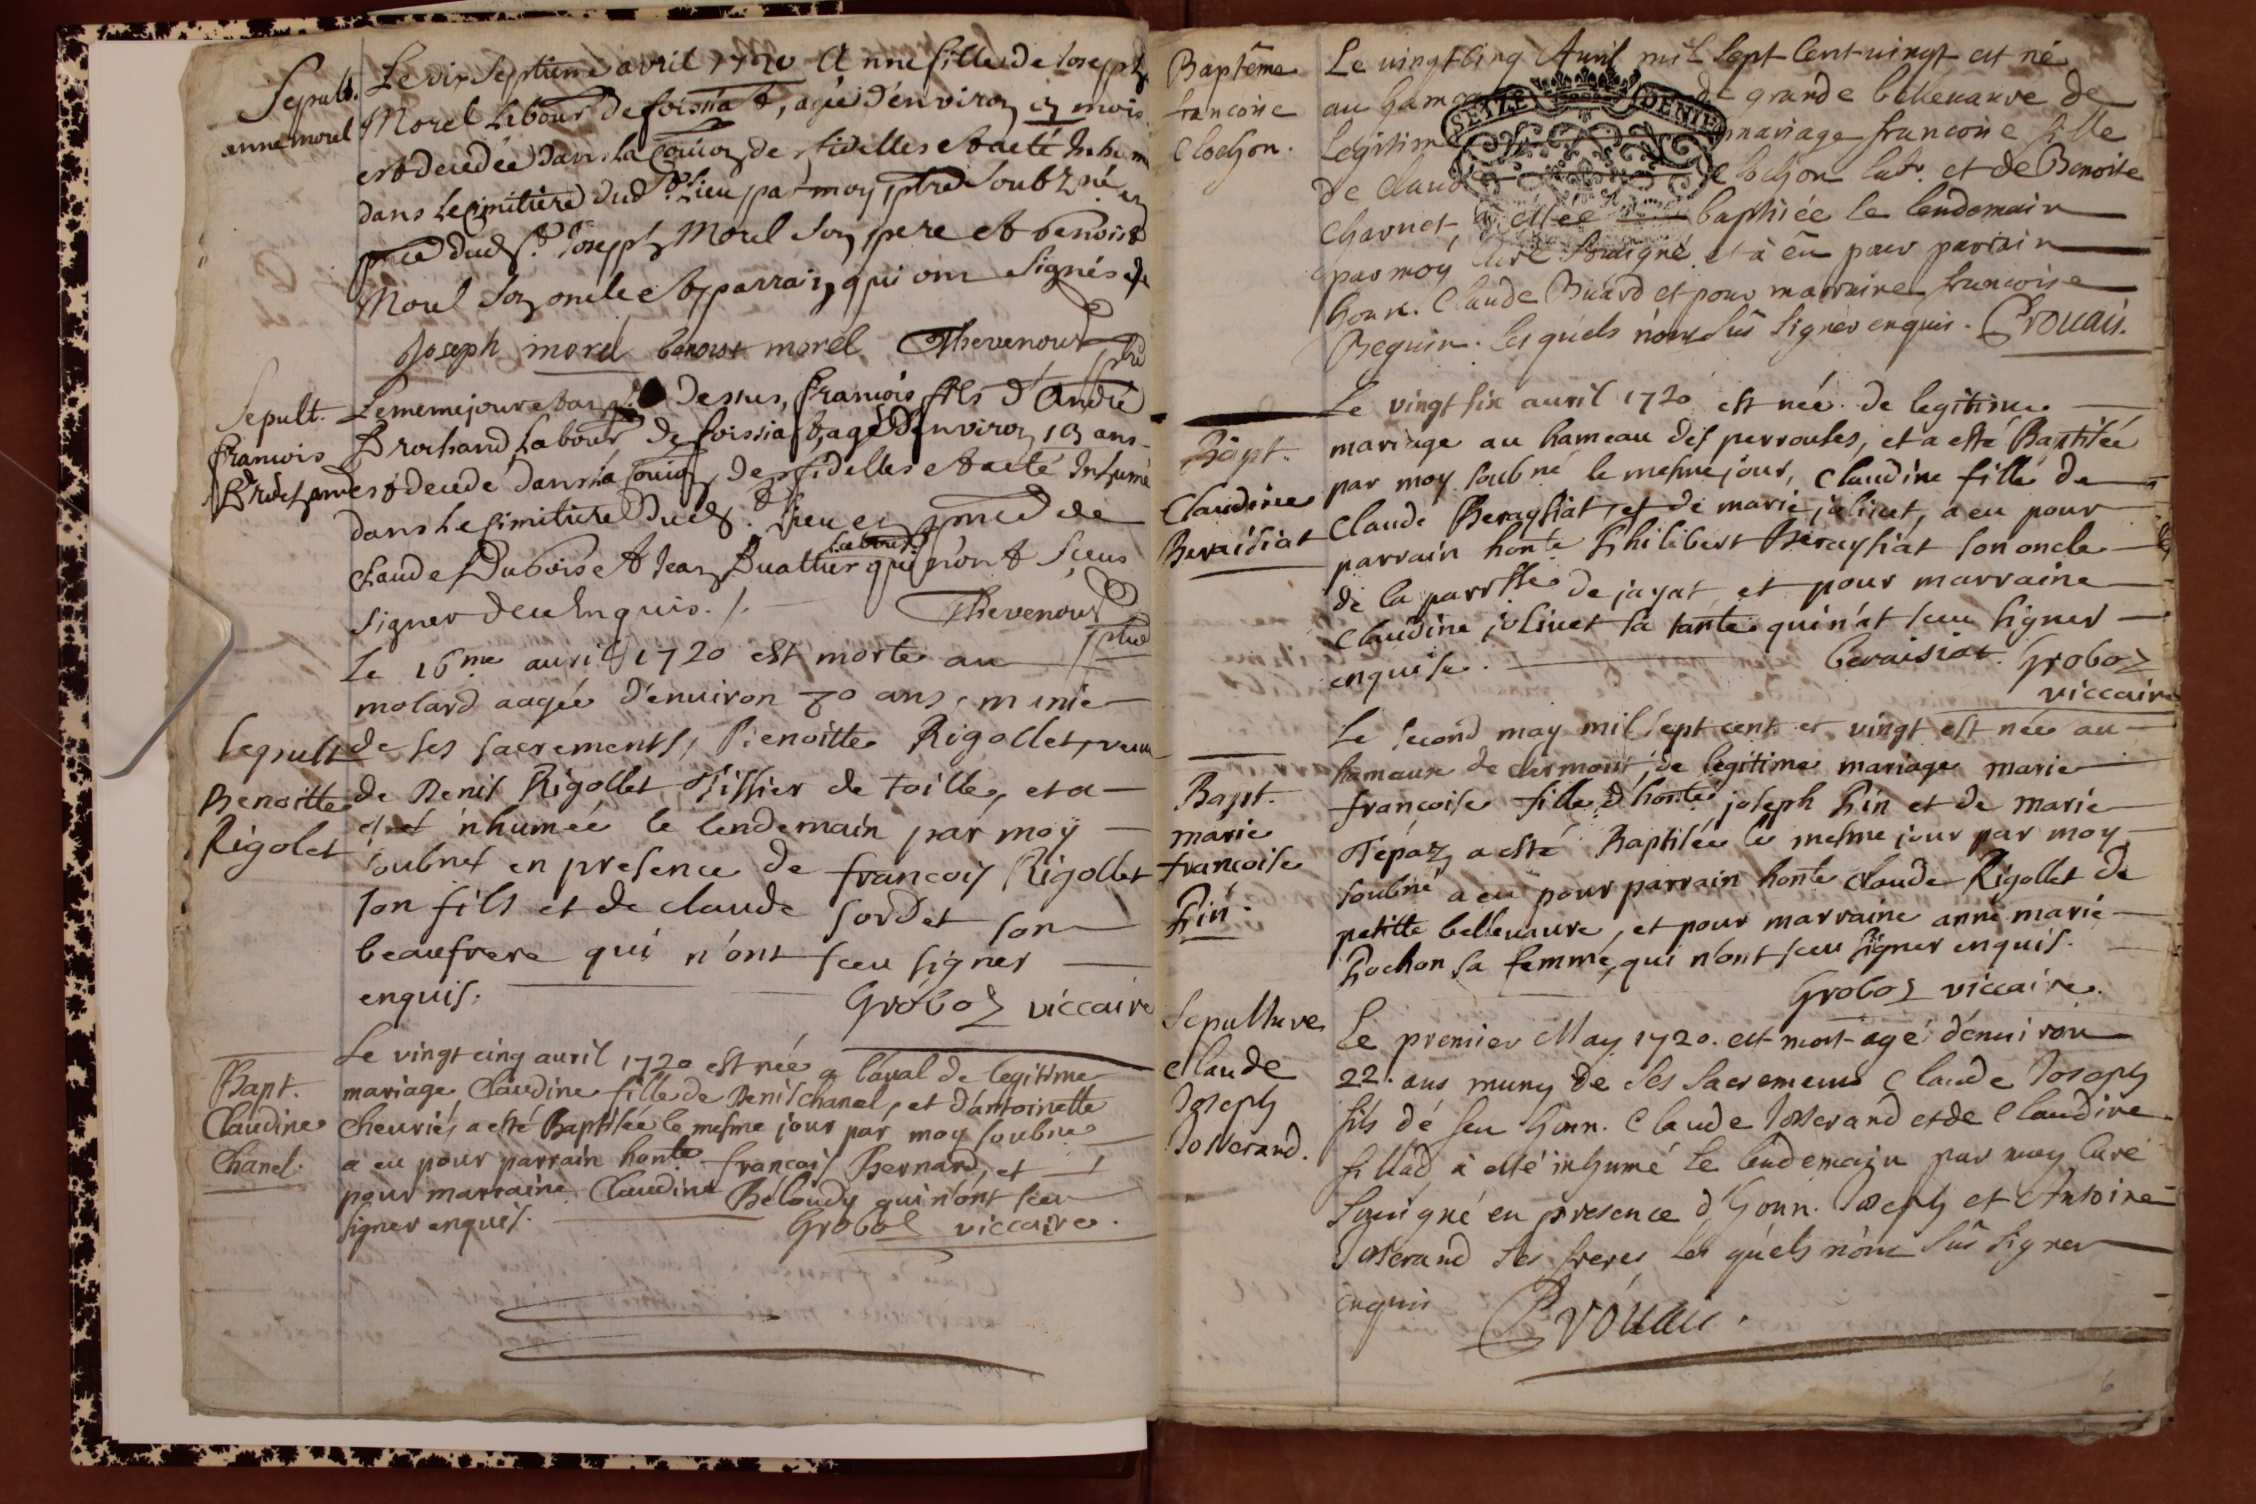 Sepult.
anne morel
Le dix septieme avril 1720 Anne fille de Joseph
Morel labour. de foissiat, agée d'environ mois
est decedée dans la de fidelles et a eté Inhumé
dans le cimitiere dud. lieu par moy ptre Soubz né en
pnce dud. Sr. Joseph Morel son pere et benoist
Morel son oncle et parrain, qui ont signés
Joseph morel benoist morel Thevenout
ptre
Sepult.
francois
Brochand
Le meme jour et an dessus, francois fils d'André
Brochand labour. de foissiat, agé d'environ ans
est decede dans la de fidelles et a eté Inhumé
dans le cimitiere dud. lieu en pnce de
Claude Dubois et Jean Buathier labour. qui n'ont sceus
signer de ce Enquis. /. Thevenout
ptre
Sepult
Benoitte
Rigolet
Le 16me auril 1720 est morte au
molard aagée d'enuiron 70 ans, munie
de ses sacrements, Benoitte Rigollet, veuve
de Denis Rigollet Tissier de toille, et a
esté inhumée le lendemain par moy
soubné en presence de francois Rigollet
son fils et de claude sordet son
beaufrere qui n'ont sceu signer
enquis. Groboz viccaire
Bapt.
Claudine
Chanel.
Le vingt cinq auril 1720 est née a laual de legitime
mariage Claudine fille de Denis chanel, et d'antoinette
cheurié, a esté Baptisée le mesme jour par moy soubné
a eu pour parrain honte francois Bernard, et
pour marraine Claudine Béloudy qui n'ont sceu
signer enquis. Groboz viccaire.
Baptême
francoise
Clochon.
Le uingt cinq Auril mil sept cent uingt est né
au ham de grande belleuaure de
SEIZE DENIE
Legitim mariage francoise fille
de Claud Clochon labr. et de Benoite
Charnet, a estée baptisée le lendemain
par moy curé soussigné et à eu pour parrain
honn. Claude Buard et pour marraine francoise
Beguin. Lesquels n'ont sus signer enquis. Crouaii.
Bapt.
Claudine
Beraisiat
Le vingt six auril 1720 est née de legitime
mariage au hameau des perroutes, et a esté Baptisée
par moy soubné le mesme jour, claudine fille de
claude Beraysiat, et de marie joliuet, a eu pour
parrain honte Philibert Beraysiat son oncle
de la parrsse de jayat et pour marraine
claudine joliuet sa tante qui n'at sceu signer
enquise. beraisiat. Groboz
viccaire
Bapt.
marie
francoise
Pin.
Le second may mil sept cent et vingt est née au
hameaux de clermont, de legitime mariage marie
francoise fille d'honte joseph Pin et de marie
Tépaz, a esté Baptisée le mesme jour par moy
soubné a eu pour parrain honte claude Rigollet de
petitte belleuaure, et pour marraine anne marie
Pochon sa femme, qui n'ont sceu signer enquis.
Groboz viccaire.
Sepulture
Claude
Joseph
Josserand.
Le premier May 1720. est mort agé d'enuiron
22. ans muny de ses sacremens Claude Joseph
fils de feu honn. Claude Josserand et de Claudine
fillad, à esté inhumé le lendemain par moy curé
soussigné en presence d'honn. Joseph et Antoine
Josserand ses freres lesquels n'ont sus signer
enquis Crouaii.
6